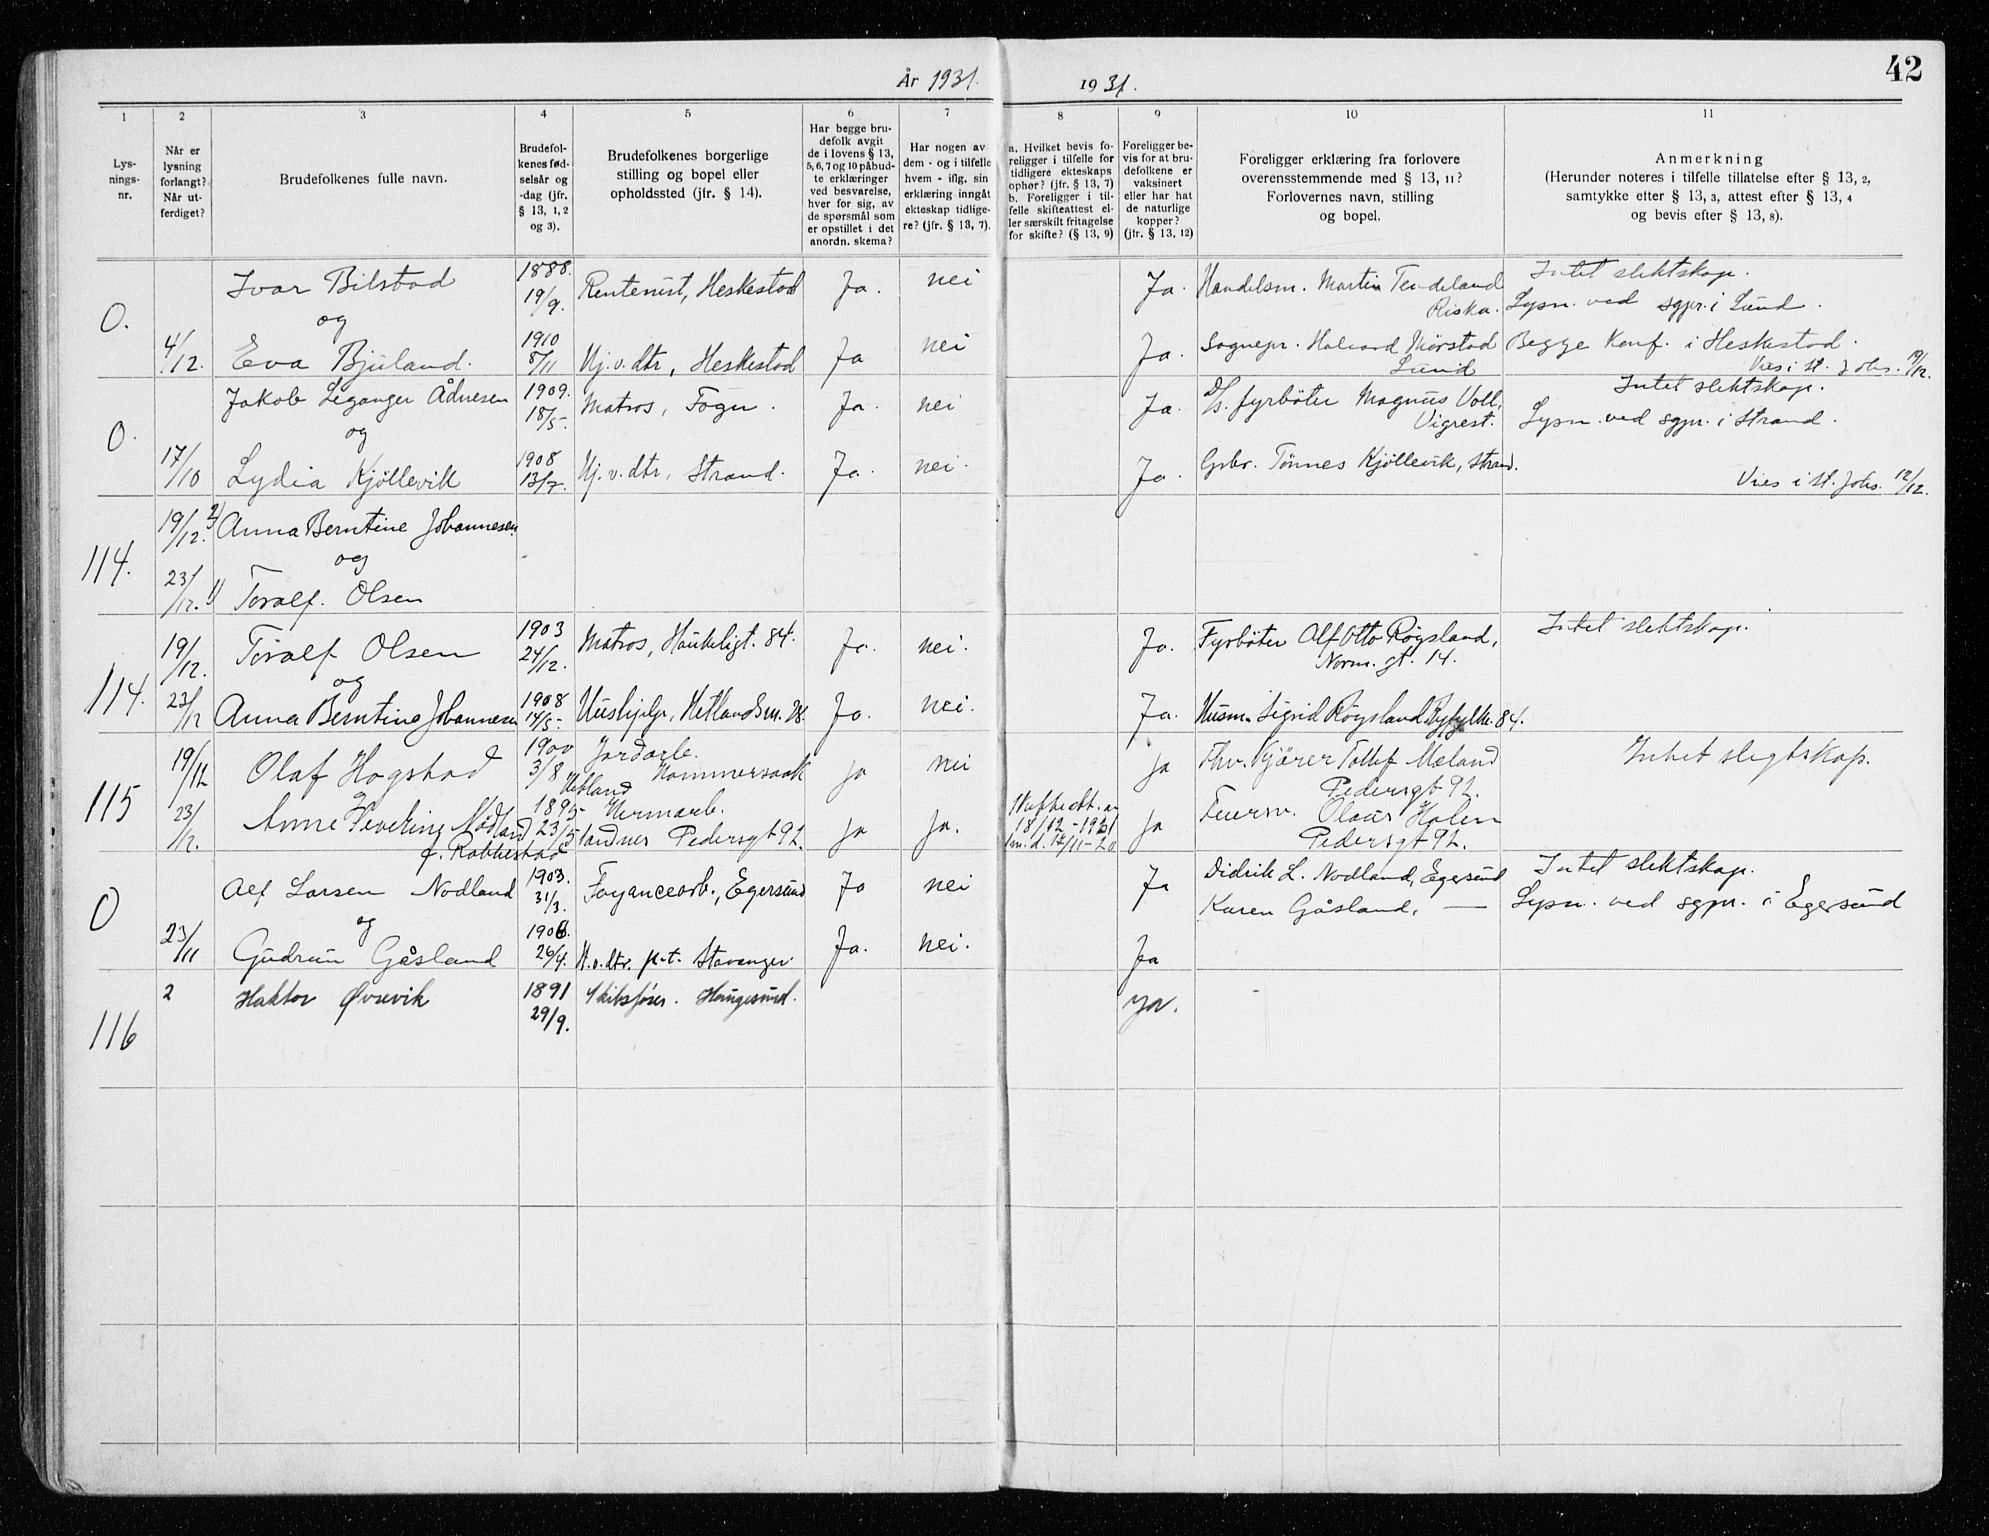 År 1931.
1931.
42
1
2
3
4
5
6
7
8
9
10
11
Lys-
nings-
nr.
Når er
lysning
forlangt?
Når ut-
ferdiget?
Brudefolkenes fulle navn.
Brudefol-
kenes fød-
selsår og
-dag (jfr.
§ 13, 1, 2
og 3).
Brudefolkenes borgerlige
stilling og bopel eller
opholdssted (jfr. § 14).
Har begge bru-
defolk avgit
de i lovens § 13,
5, 6, 7 og 10 påbud-
te erklæringer
ved besvarelse,
hver for sig, av
de spørsmål som
er opstillet i det
anordn. skema?
Har nogen av
dem - og i tilfelle
hvem - iflg. sin
erklæring inngått
ekteskap tidlige-
re? (jfr. § 13, 7).
a. Hvilket bevis fo-
religger i tilfelle for
tidligere ekteskaps
ophør? (jfr. § 13, 7)
b. Foreligger i til-
felle skifteattest el-
ler særskilt fritagelse
for skifte? (§ 13, 9)
Foreligger be-
vis for at bru-
defolkene er
vaksinert
eller har hat
de naturlige
kopper?
(jfr. § 13, 12)
Foreligger erklæring fra forlovere
overensstemmende med § 13, 11?
Forlovernes navn, stilling
og bopel.
Anmerkning
(Herunder noteres i tilfelle tillatelse efter § 13, 2,
samtykke efter § 13, 3, attest efter § 13, 4
og bevis efter § 13, 8).
0.
4/12.
Ivar Bilstad
og
Eva Bjuland.
1888.
19/9.
1910
8/11
Rentenist, Heskestad
Hj.v.dtr, Heskestad
Ja.
Ja
nei
nei
Ja.
Ja.
Handelsm. Martin Tendeland
Riska.
Sognepr. Halvard Mørstad
Lund
Intet slektskap.
Lysn. ved sgpr. i Lund.
Begge konf. i Heskestad.
Vies i st. Johs. 19/12.
0.
17/10
Jakob Leganger Ådnesen
og
Lydia Kjøllevik
1909.
18/5-
1908
13/7.
Matros, Fogn.
Hj.v.dtr, Strand.
Ja.
Ja.
nei
nei.
Ja.
Ja.
D/s. fyrbøter Magnus Voll,
Vigrest.
Gsbr. Tønnes Kjøllevik, Strand.
Intet slektskap.
Lysn. ved sgpr. i Strand.
Vies i st. Johs. 12/12.
114.
19/12. 2)
23/12. 1)
Anna Berntine Johannesen
og
Toralf. Olsen
114.
19/12.
23/12
Toralf Olsen
og
Anna Berntine Johannesen
1903
24/12.
1908
14/5-
Matros, Haukeligt. 84.
Hushjelp, Hetlandsm. 28.
Ja.
Ja.
nei.
nei.
Ja.
Ja.
Fyrbøter Alf Otto Røysland,
Norm. gt. 14.
Husm. Sigrid Røysland, Ryfylke. 84.
Intet slektskap.
115
19/12
23/12.
Olaf Hogstad
og
Anne Severine Nødland
f. Rabbestad
1900
3/8
1895-
23/5
Jordarb.
Hommersaak
Hetland
Hermarb.
Pedersgt 92.
ja
ja
nei
ja.
18/12-1931
ja
ja
Fhv. Kjører Tollef Mæland
Pedersgt 92.
Feiersv. Olaus Holen
Pedersgt 92.
Intet slegtskap.
0
23/11
Alf Larsen Nodland
og
Gudrun Gåsland
1903.
31/3.
1906.
26/4.
Fayancearb., Egersund
H.v.dtr. p.t. Stavanger.
Ja
Ja.
nei
nei.
Ja
Ja
Didrik L. Nodland, Egersund
Karen Gåsland, —
Intet slektskap.
Lysn. ved sgpr. i Egersund
116
2
Haktor Øvrevik
1891
29/9.
Skibsfører. Haugesund.
ja.